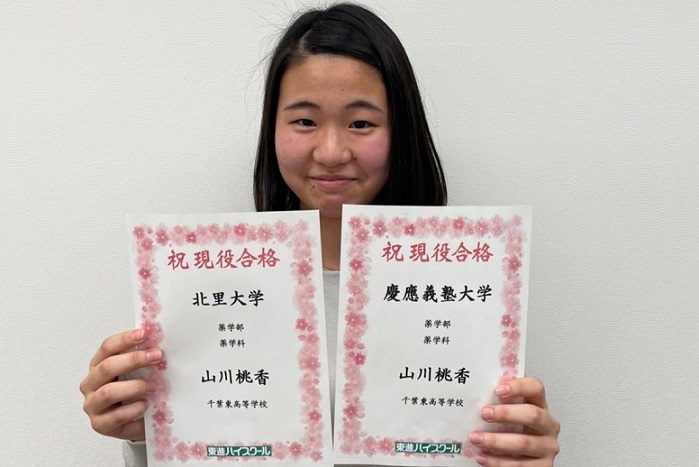 祝 現役合格
北里大学
薬学部
薬学科
山川桃香
千葉東高等学校
東進ハイスクール
祝 現役合格
慶應義塾大学
薬学部
薬学科
山川桃香
千葉東高等学校
東進ハイスクール